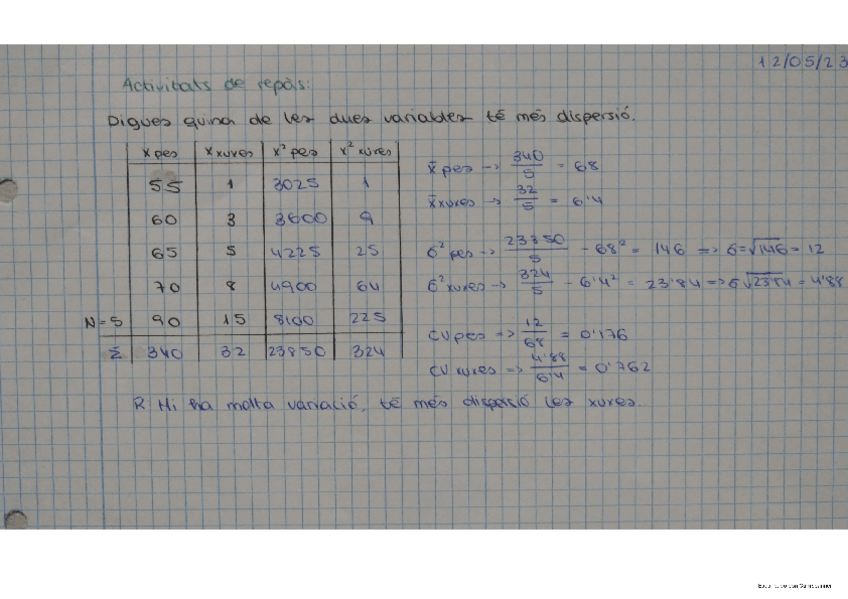 12/05/23
Activitats de repàs:
Digues quina de les dues variables té més dispersió.
x pes x xuxes x² pes x² xuxes
55 1 3025 1
60 3 3600 9
65 5 4225 25
70 8 4900 64
N=5 90 15 8100 225
Σ 340 32 23850 324
x̄ pes -> 340/5 = 68
x̄ xuxes -> 32/5 = 6'4
σ² pes -> 23850/5 - 68² = 146 => σ=√146 = 12
σ² xuxes -> 324/5 - 6'4² = 23'84 => σ√23'84 = 4'88
CV pes => 12/68 = 0'176
CV xuxes => 4'88/6'4 = 0'762
R: Hi ha molta variació, té més dispersió les xuxes.